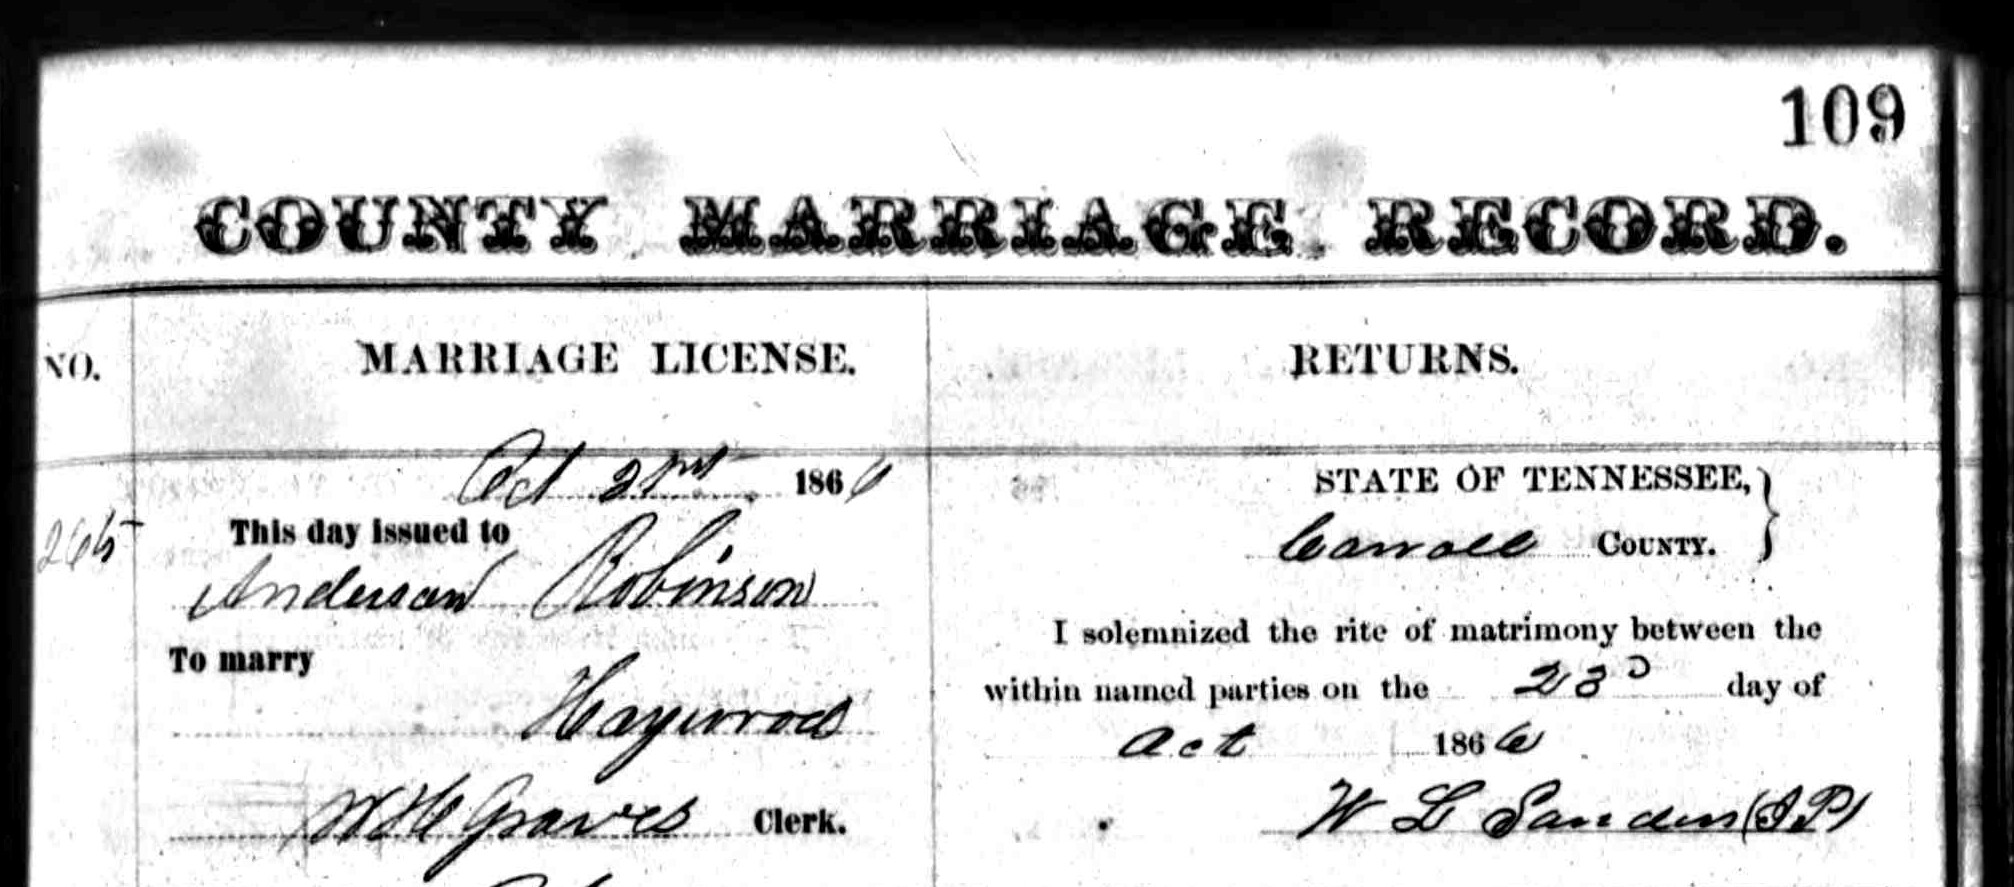 109
COUNTY MARRIAGE RECORD.
NO.
MARRIAGE LICENSE.
RETURNS.
Oct 21st 1866
265
This day issued to
Anderson Robinson
To marry
Haywood
W H Graves Clerk.
STATE OF TENNESSEE,
Carroll COUNTY.
I solemnized the rite of matrimony between the
within named parties on the 23D day of
Oct 1866
W L Sanders (JP)